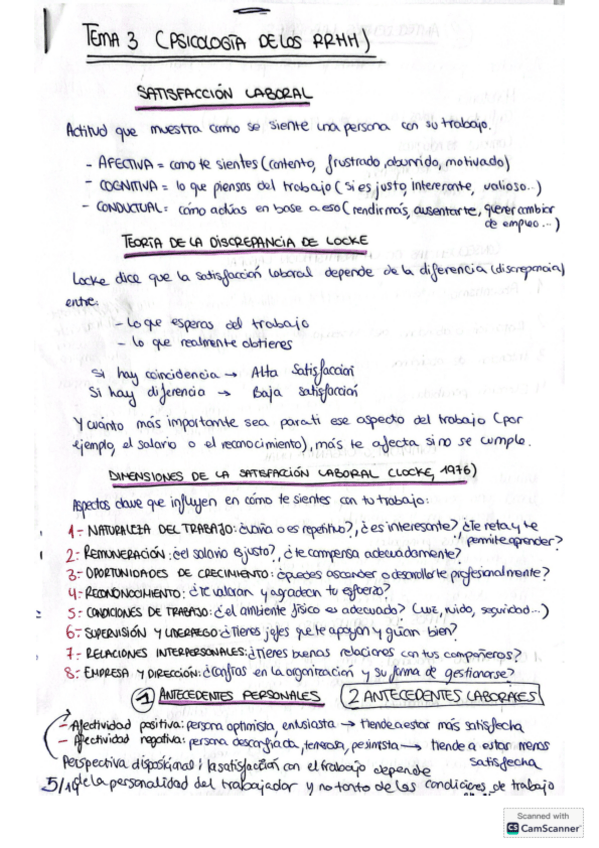 TEMA 3 (PSICOLOGÍA DE LOS RRHH)
SATISFACCIÓN LABORAL
Actitud que muestra como se siente una persona con su trabajo.
- AFECTIVA = como te sientes (contento, frustrado, aburrido, motivado)
- COGNITIVA = lo que piensas del trabajo (si es justo, interesante, valioso...)
- CONDUCTUAL = cómo actúas en base a eso (rendir más, ausentarte, querer cambiar
de empleo...)
TEORÍA DE LA DISCREPANCIA DE LOCKE
Locke dice que la satisfacción laboral depende de la diferencia (discrepancia)
entre:
- Lo que esperas del trabajo
- lo que realmente obtienes
Si hay coincidencia → Alta Satisfacción
Si hay diferencia → Baja satisfacción
Y cuánto más importante sea para ti ese aspecto del trabajo (por
ejemplo, el salario o el reconocimiento), más te afecta si no se cumple.
DIMENSIONES DE LA SATISFACCIÓN LABORAL (LOCKE, 1976)
Aspectos clave que influyen en cómo te sientes con tu trabajo:
1.- NATURALEZA DEL TRABAJO: ¿varia o es repetitivo?, ¿es interesante? ¿Te reta y te
permite aprender?
2.- REMUNERACIÓN: ¿el salario es justo?, ¿te compensa adecuadamente?
3.- OPORTUNIDADES DE CRECIMIENTO: ¿puedes ascender o desarrollarte profesionalmente?
4.- RECONONOCIMIENTO: ¿te valoran y agradecen tu esfuerzo?
5.- CONDICIONES DE TRABAJO: ¿el ambiente físico es adecuado? (luz, ruido, seguridad...)
6.- SUPERVISIÓN Y LIDERAZGO: ¿Tienes jefes que te apoyan y guían bien?
7.- RELACIONES INTERPERSONALES: ¿Tienes buenas relaciones con tus compañeros?
8.- EMPRESA Y DIRECCIÓN: ¿confías en la organización y su forma de gestionarse?
1 ANTECEDENTES PERSONALES 2 ANTECEDENTES LABORALES
- Afectividad positiva: persona optimista, entusiasta → tiende a estar más satisfecha
- Afectividad negativa: persona desconfiada, tensa, pesimista → tiende a estar menos
satisfecha
Perspectiva disposicional: la satisfacción con el trabajo depende
de la personalidad del trabajador y no tanto de las condiciones de trabajo
Scanned with
CS CamScanner